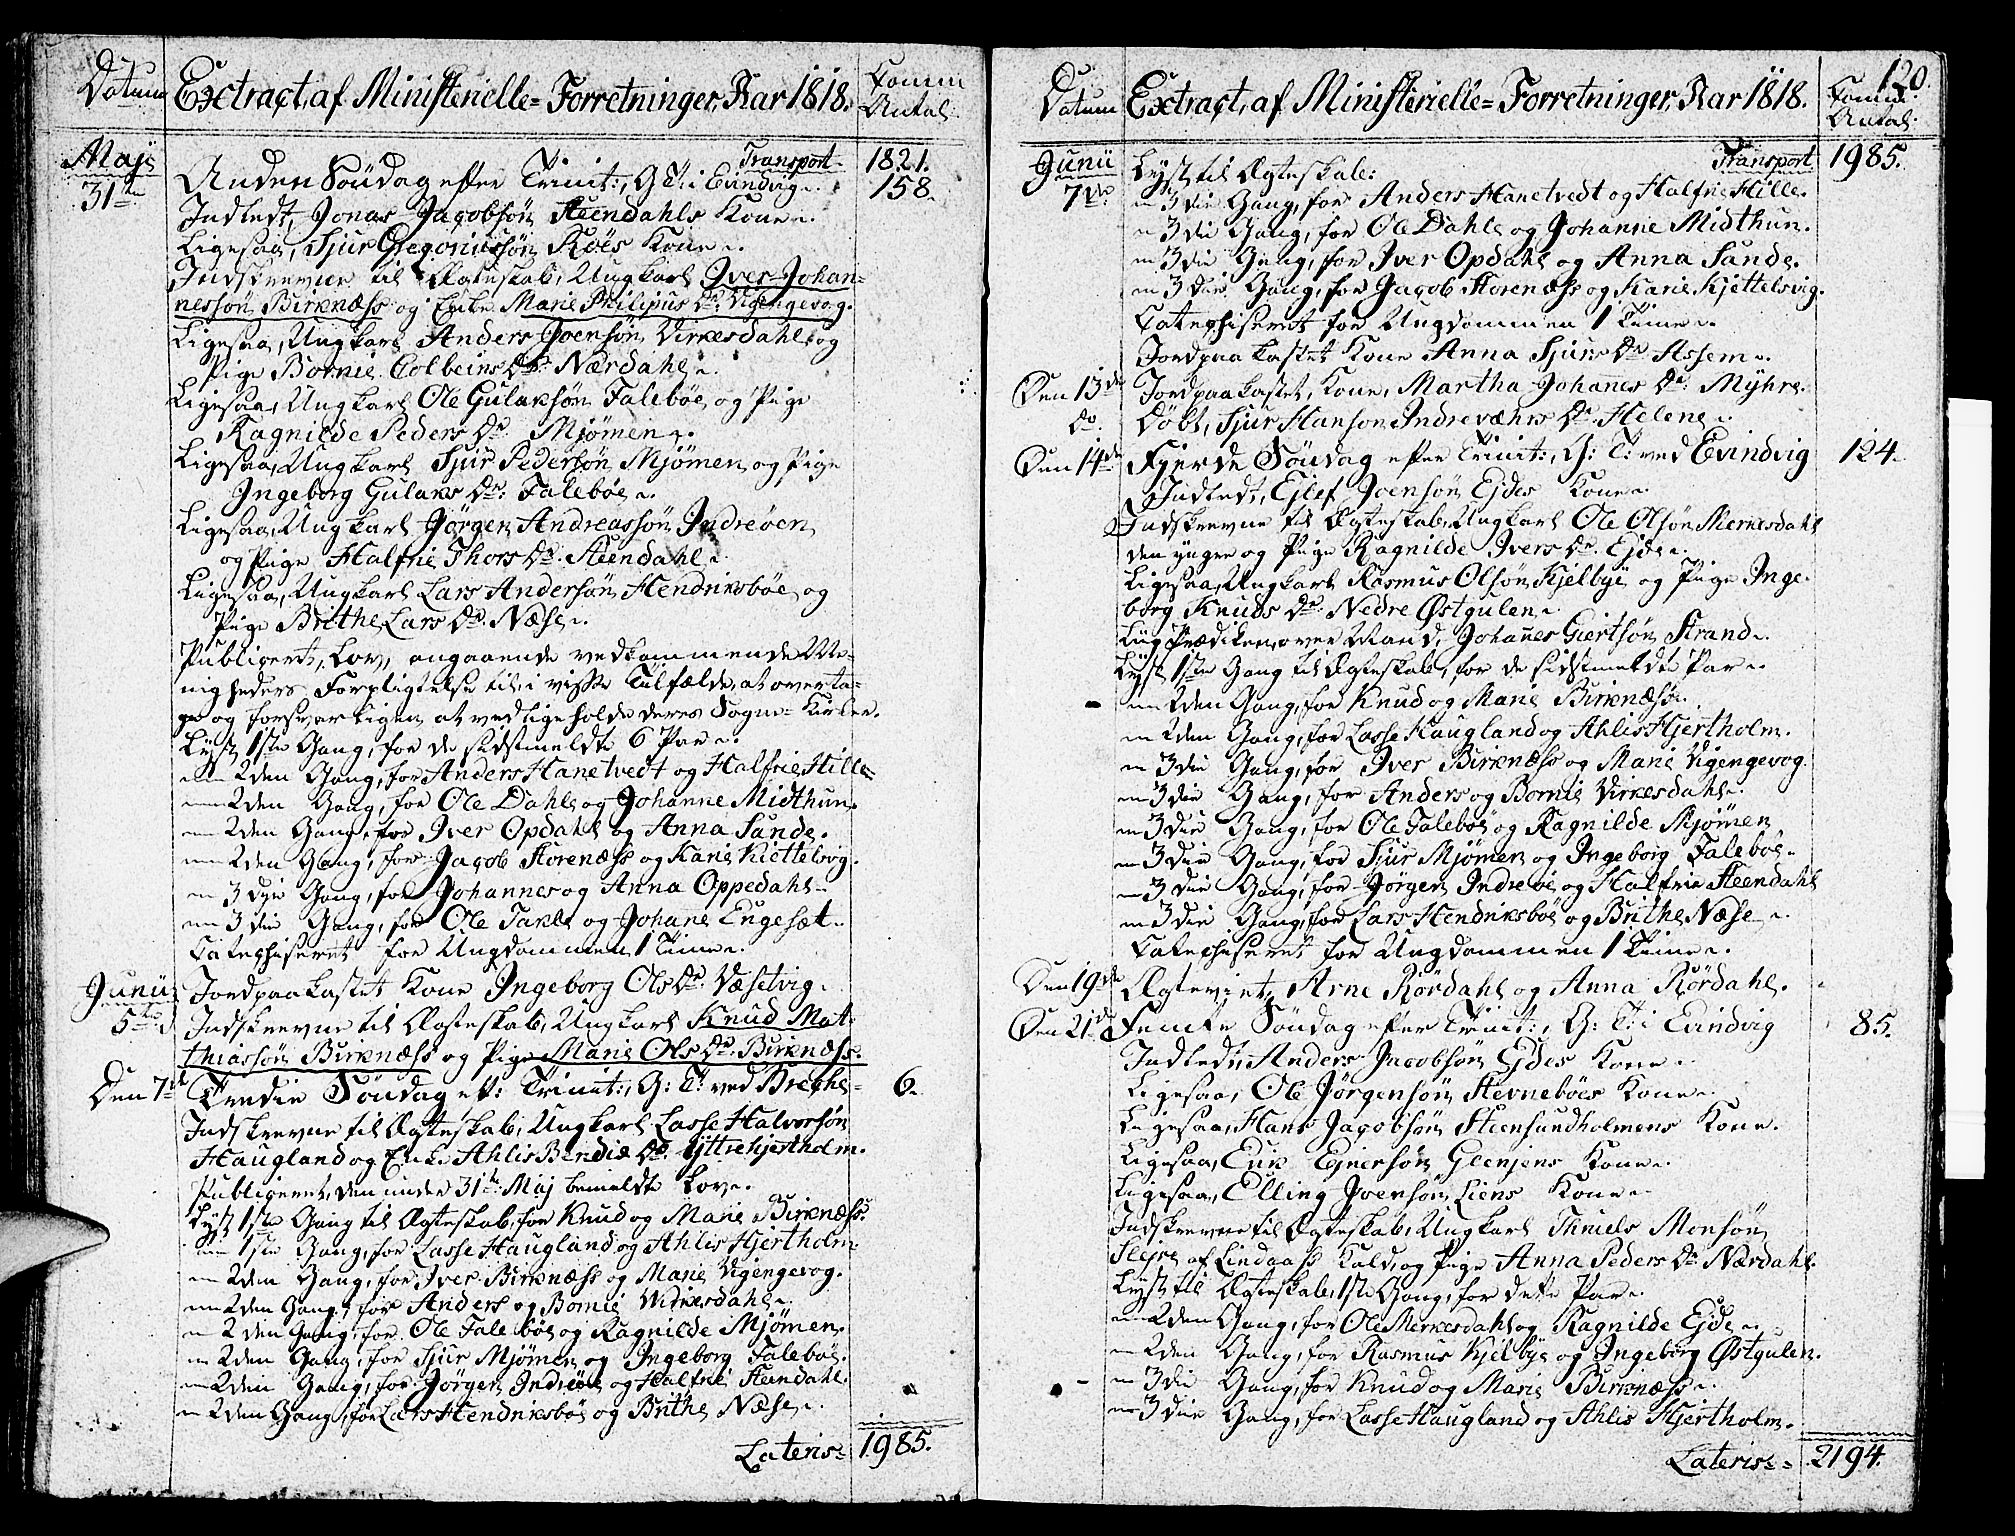 Datum Extract, af Ministerielle=Forretninger, Aar 1818. Comm: Antal.
Transport 1821.
Maji 31te Anden Söndag efter Trinit:, G: T: i Evindvig. 158.
Indledt, Jonas Jacobsön Steendahls Kone.
Ligesaa, Sjur Gregoriussön Röes Kone.
Indskrevne til Ægteskab, Ungkarl Iver Johan=
nessön Birknæss og Enke Marie Philipus Dr. Vigengevog.
Ligesaa, Ungkarl Anders Joensön Virkesdahl, og
Pige Bornie Colbeins Dr. Nærdahl.
Ligesaa, Ungkarl Ole Gulaksön Faleböe, og Pige
Ragnilde Peders Dr. Mjömen.
Ligesaa, Ungkarl Sjur Pedersön Mjömen og Pige
Ingeborg Gulaks Dr: Faleböe.
Ligesaa, Ungkarl Jörgen Andreassön Indreöen,
og Pige Halfrie Thors Dr. Steendahl.
Ligesaa, Ungkarl Lars Andersön Hendriksböe, og
Pige Brithe Lars Dr. Næse.
Publicert, Lov, angaaende vedkommende Me=
nigheders Forpligtelse til, i visse Tilfælde, at overta=
ge og forsvarligen at vedligeholde deres Sogne=Kirker.
Lyst 1ste Gang, for de sidstmeldte 6 Par.
— 2den Gang, for Anders Hanetvedt og Halfrie Hille
— 2den Gang, for Ole Dahl og Johanne Midthun.
— 2den Gang, for Iver Opdahl og Anna Sande.
— 2den Gang, for Jacob Storenæss og Karie Kiettelsvig.
— 3die Gang, for Johannes og Anna Oppedahl.
— 3die Gang, for Ole Takle og Johane Engesæt.
Catechiseret for Ungdommen 1 Time.
Junii 5te Jordpaakastet Kone Ingeborg Ols Dr. Væsetvig.
Indskrevne til Ægteskab, Ungkarl Knud Mat=
thiassön Birknæss og Pige Marie Ols Dr. Birknæss.
Den 7de Tredie Söndag ef: Trinit:, G: T: ved Brekke. 6.
Indskrevne til Ægteskab, Ungkarl Lasse Halvorsön
Haugland og Enke Ahlis Bendix Dr. Yttrehjertholm.
Publiceret, den under 31te Maj bemeldte Lov.
Lyst 1ste Gang til Ægteskab, for Knud og Marie Birknæss.
— 1ste Gang, for Lasse Haugland og Ahlis Hjertholm
— 2den Gang, for Iver Birknæss og Marie Vigengevog.
— 2den Gang, for Anders og Bornie Virkesdahl.
— 2den Gang, for Ole Faleböe og Ragnilde Mjömen.
— 2den Gang, for Sjur Mjömen og Ingeborg Faleböe.
— 2den Gang, for Jörgen Indreöe og Halfrie Steendahl.
— 2den Gang, for Lars Hendriksböe og Brithe Næse.
Lateris 1985.
120.
Datum Extract, af Ministerielle=Forretninger, Aar 1818. Comm: Antal.
Transport 1985.
Junii 7de Lyst til Ægteskab:
— 3die Gang, for Anders Hanetvedt og Halfrie Hille.
— 3die Gang, for Ole Dahl og Johanne Midthun.
— 3die Gang, for Iver Opdahl og Anna Sande.
— 3die Gang, for Jacob Storenæss og Karie Kjettelsvig.
Catechiseret for Ungdommen 1 Time.
Jordpaakastet Kone Anna Sjurs Dr Assem.
Den 13de Jordpaakastet, Kone, Martha Johannes Dr: Myhre.
do. Döbt, Sjur Hanson Indrevæhrs Dr. Helene.
Den 14de Fjerde Söndag efter Trinit:, G: T: ved Evindvig 124.
Indledt, Ejlef Joensön Ejdes Kone.
Indskrevne til Ægteskab, Ungkarl Ole Olsön Merkesdahl
den yngre og Pige Ragnilde Ivers Dr. Ejde.
Ligesaa, Ungkarl Rasmus Olsön Kjelbye og Pige Inge=
borg Knuds Dr. Nedre Østgulen.
Liig Prædiken, over Mand, Johannes Giertsön Strand.
Lyst 1ste Gang til Ægteskab, for de sidstmeldte Par.
— 2den Gang, for Knud og Marie Birknæss.
— 2den Gang, for Lasse Haugland og Ahlis Hjertholm.
— 3die Gang, for Iver Birknæss og Marie Vigengevog.
— 3die Gang, for Anders og Bornie Virkesdahl.
— 3die Gang, for Ole Faleböe og Ragnilde Mjömen
— 3die Gang, for Sjur Mjömen og Ingeborg Faleböe.
— 3die Gang, for Jörgen Indreöe og Halfrie Steendahl
— 3die Gang, for Lars Hendriksböe og Brithe Næse.
Catechiseret for Ungdommen 1 Time.
Den 19de Ægteviet, Arne Rördahl og Anna Rördahl.
Den 21de Femte Söndag efter Trinit:, G: T: i Evindvig 85.
Indledt, Anders Jacobsön Ejdes Kone.
Ligesaa, Ole Jörgensön Stevneböes Kone.
Ligesaa, Hans Jacobsön Steensundholmens Kone.
Ligesaa, Erik Ejnersön Glenjens Kone.
Ligesaa, Elling Joensön Liens Kone.
Indskrevne til Ægteskab, Ungkarl Thniels Monsön
Slejre af Lindaass Kald, og Pige Anna Peders Dr. Nærdahl.
Lyst til Ægteskab, 1ste Gang, for dette Par.
— 2den Gang, for Ole Merkesdahl og Ragnilde Ejde.
— 2den Gang, for Rasmus Kjelbye og Ingeborg Østgulen.
— 3die Gang, for Knud og Marie Birknæss.
— 3die Gang, for Lasse Haugland og Ahlis Hjertholm.
Lateris 2194.